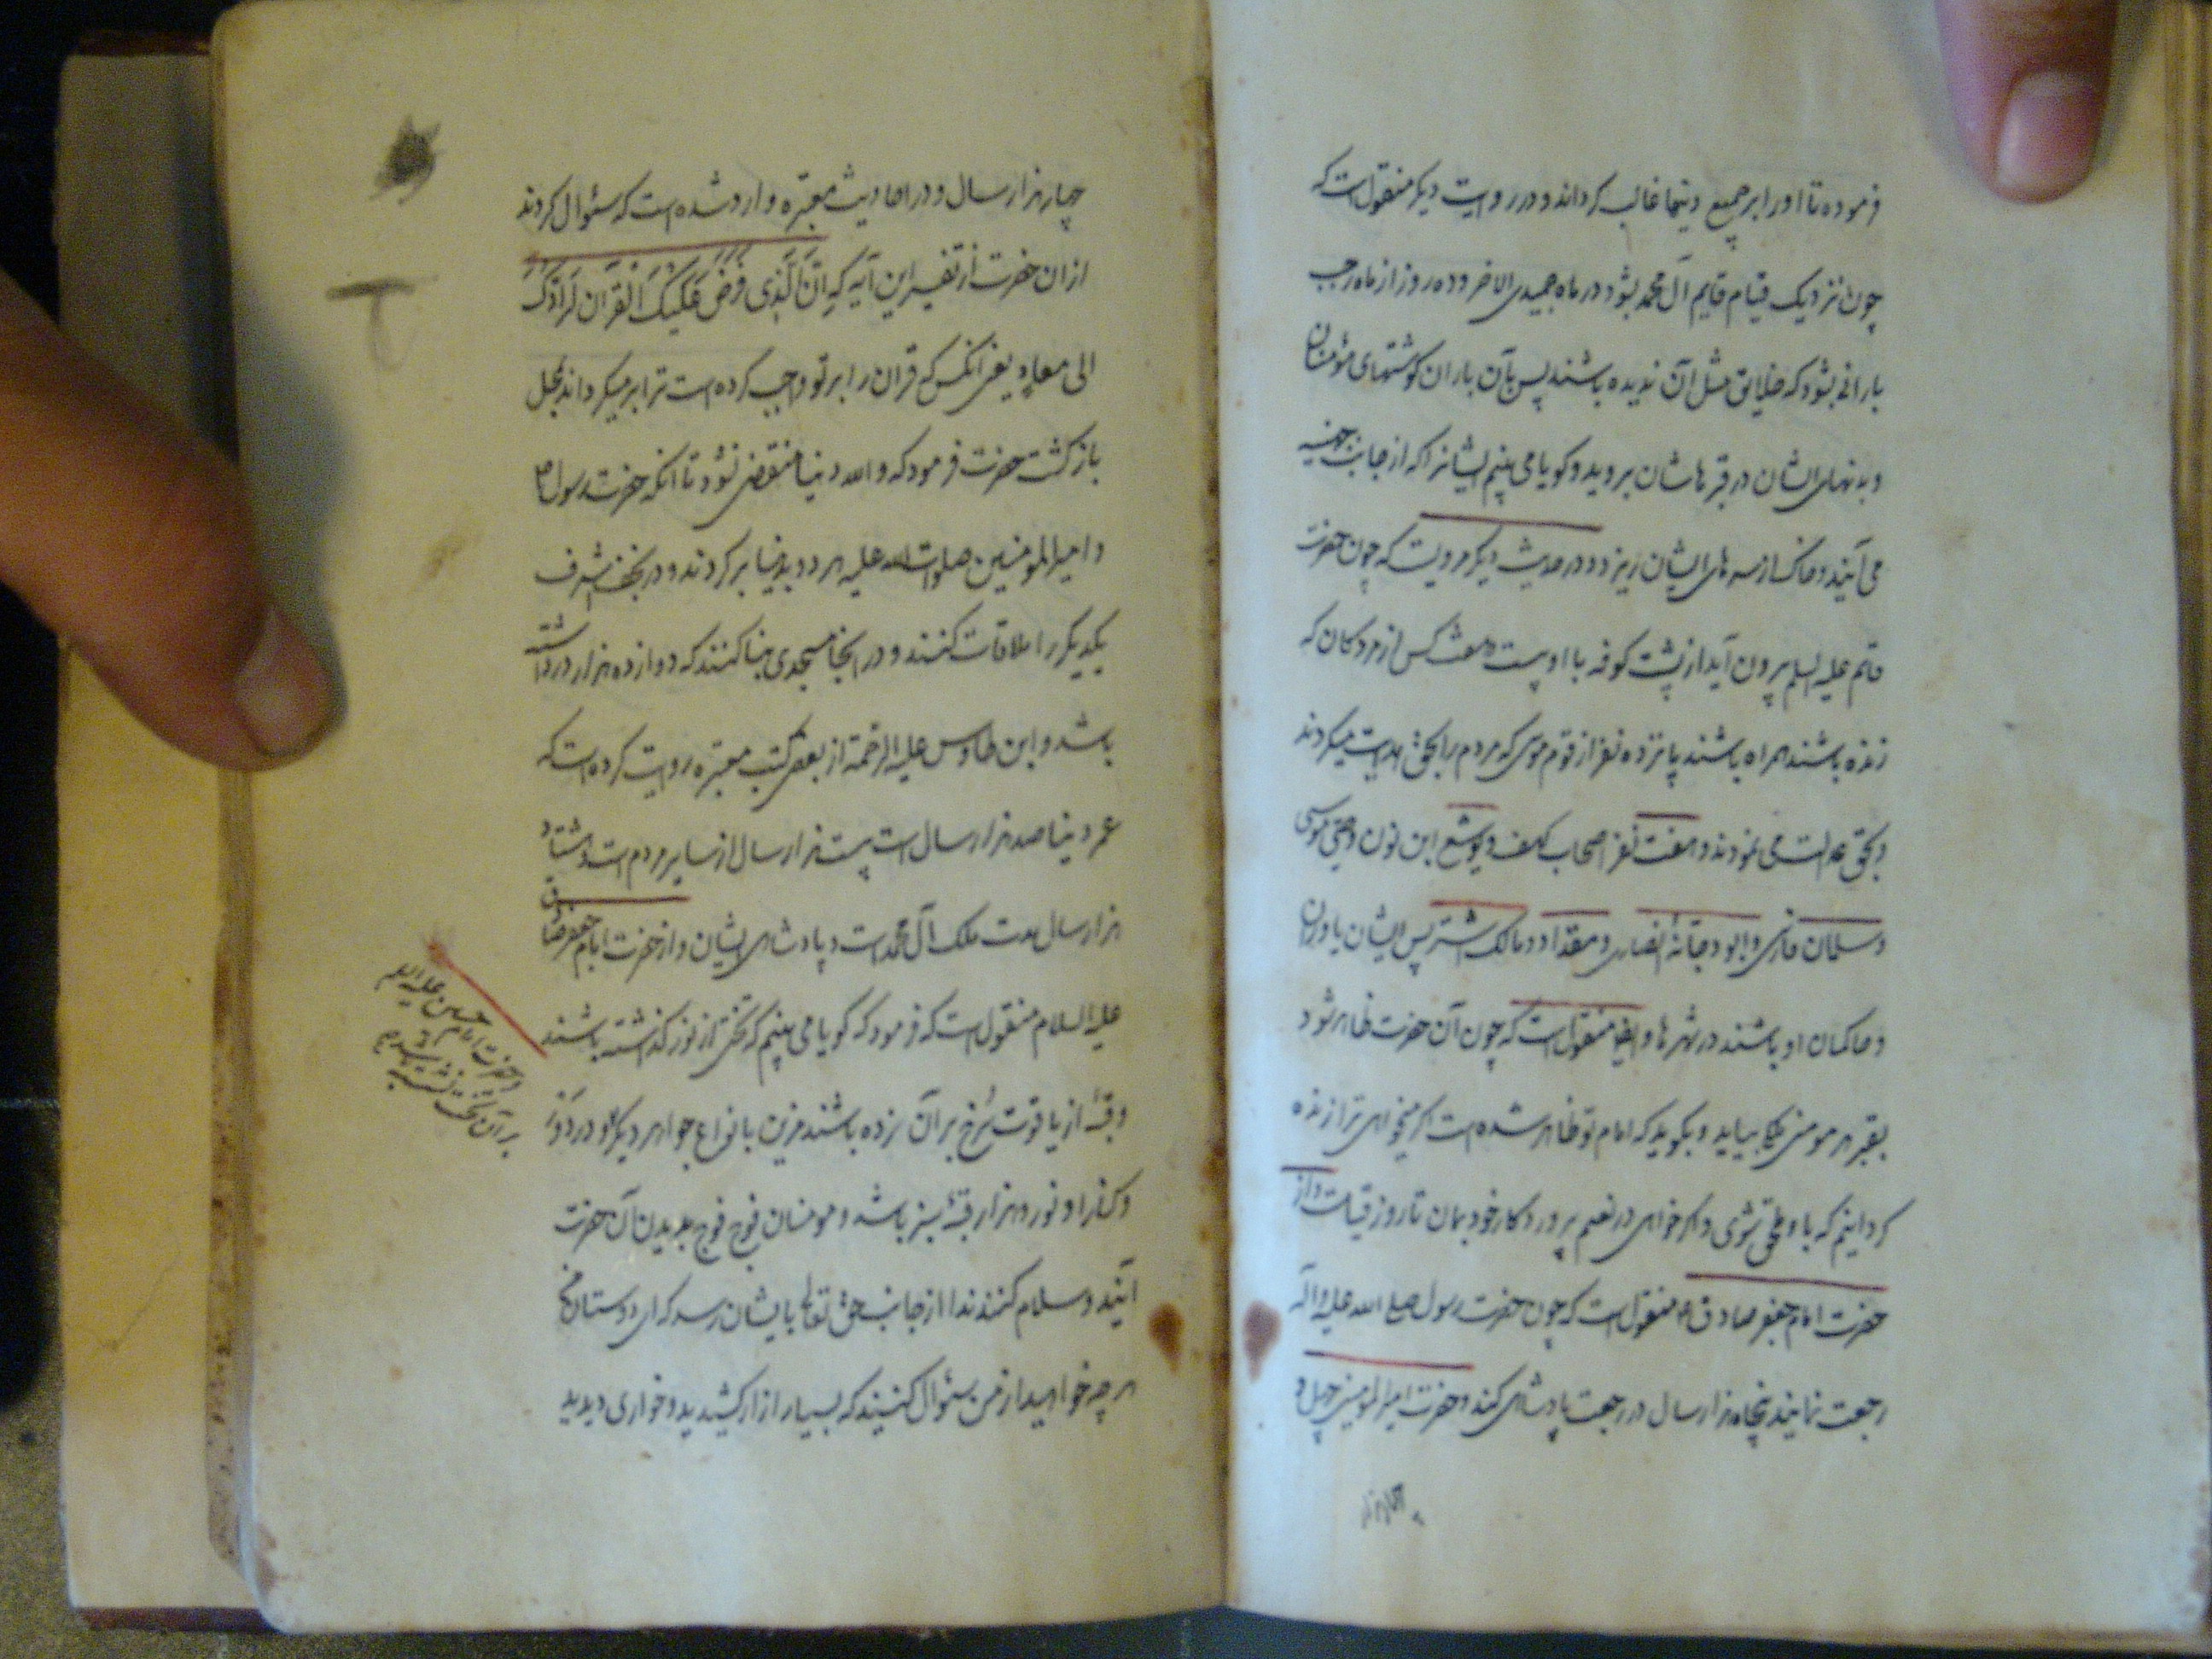 فرموده تا او را بر جمیع دینها غالب کرداند و در روایت دیکر منقولست که
چون نزدیک قیام قایم آل محمد بشود در ماه جمیدی الاخر و ده روز از ماه رجب
بارانی بشود که خلایق مثل آن ندیده باشند پس بآن باران کوشتهای مؤمنان
و بدنهای ایشان در قبرهاشان بروید و کویا می بینم ایشانرا که از جانب جهنیه
می آیند و خاک از سرهای ایشان ریزد و در حدیث دیکر مرویست که چون حضرت
قائم علیه السلم بیرون آید از پشت کوفه با او بیست و هفت کس از مردکان که
زنده باشند همراه باشند پانزده نفر از قوم موسی که مردم را بحق هدایت میکردند
و بحق عدالت می نمودند و هفت نفر اصحاب کهف و یوشع ابن نون وصی موسی
و سلمان فارسی و ابو دجانهٔ انصاری و مقداد و مالک اشتر پس ایشان یاوران
و حاکمان او باشند در شهرها و ایضا منقولست که چون آن حضرت ظاهر شود
بقبر هر مومنی ملکی بیاید و بکوید که امام تو ظاهر شده است اکر میخواهی ترا زنده
کردانیم که باو ملحق شوی و اکر خواهی در نعیم پروردکار خود بمان تا روز قیامت و از
حضرت امام جعفر صادق ع منقولست که چون حضرت رسول صلی الله علیه و آله
رجعت نمایند پنجاه هزار سال در رجعت پادشاهی کند و حضرت امیرالمومنین چهل و
چهار هزار
چهار هزار سال و در احادیث معتبره وارد شده است که سئوال کردند
از ان حضرت از تفسیر این آیه که اِنَّ الَّذی فَرَضَ عَلَیْکَ الْقُرآنَ لَرادُّکَ
الی معاد یعنی آنکس که قرآن را بر تو واجب کرده است ترا بر میکرداند بمحل
بازکشت حضرت فرمود که والله دنیا منقضی نشود تا آنکه حضرت رسول ص
و امیرالمومنین صلوات الله علیه هر دو بدنیا برکردند و در نجف اشرف
یکدیکر را ملاقات کنند و در آنجا مسجدی بنا کنند که دوازده هزار در داشته
باشد و ابن طاوس علیه الرحمة از بعضی کتب معتبره روایت کرده است که
عمر دنیا صد هزار سال است بیست هزار سال از سایر مردم است و هشتاد
هزار سال مدت ملک آل محمد است و پادشاهی ایشان و از حضرت امام جعفر صادق
علیه السلام منقول است که فرمود که کویا می بینم که تختی از نور کذاشته باشند
و حضرت امام حسین علیه السلام
بر آن تخت نشسته
و قبهٔ از یاقوت سُرخ بر آن زده باشند مزین بانواع جواهر دیکر و در دور
و کنار او نود هزار قبهٔ سبز باشد و مومنان فوج فوج بدیدن آن حضرت
آیند و سلام کنند ندا از جانب حق تعالی بایشان رسد که ای دوستان من
هر چه خواهید از من سئوال کنید که بسیار ازار کشیدید و خواری دیدید